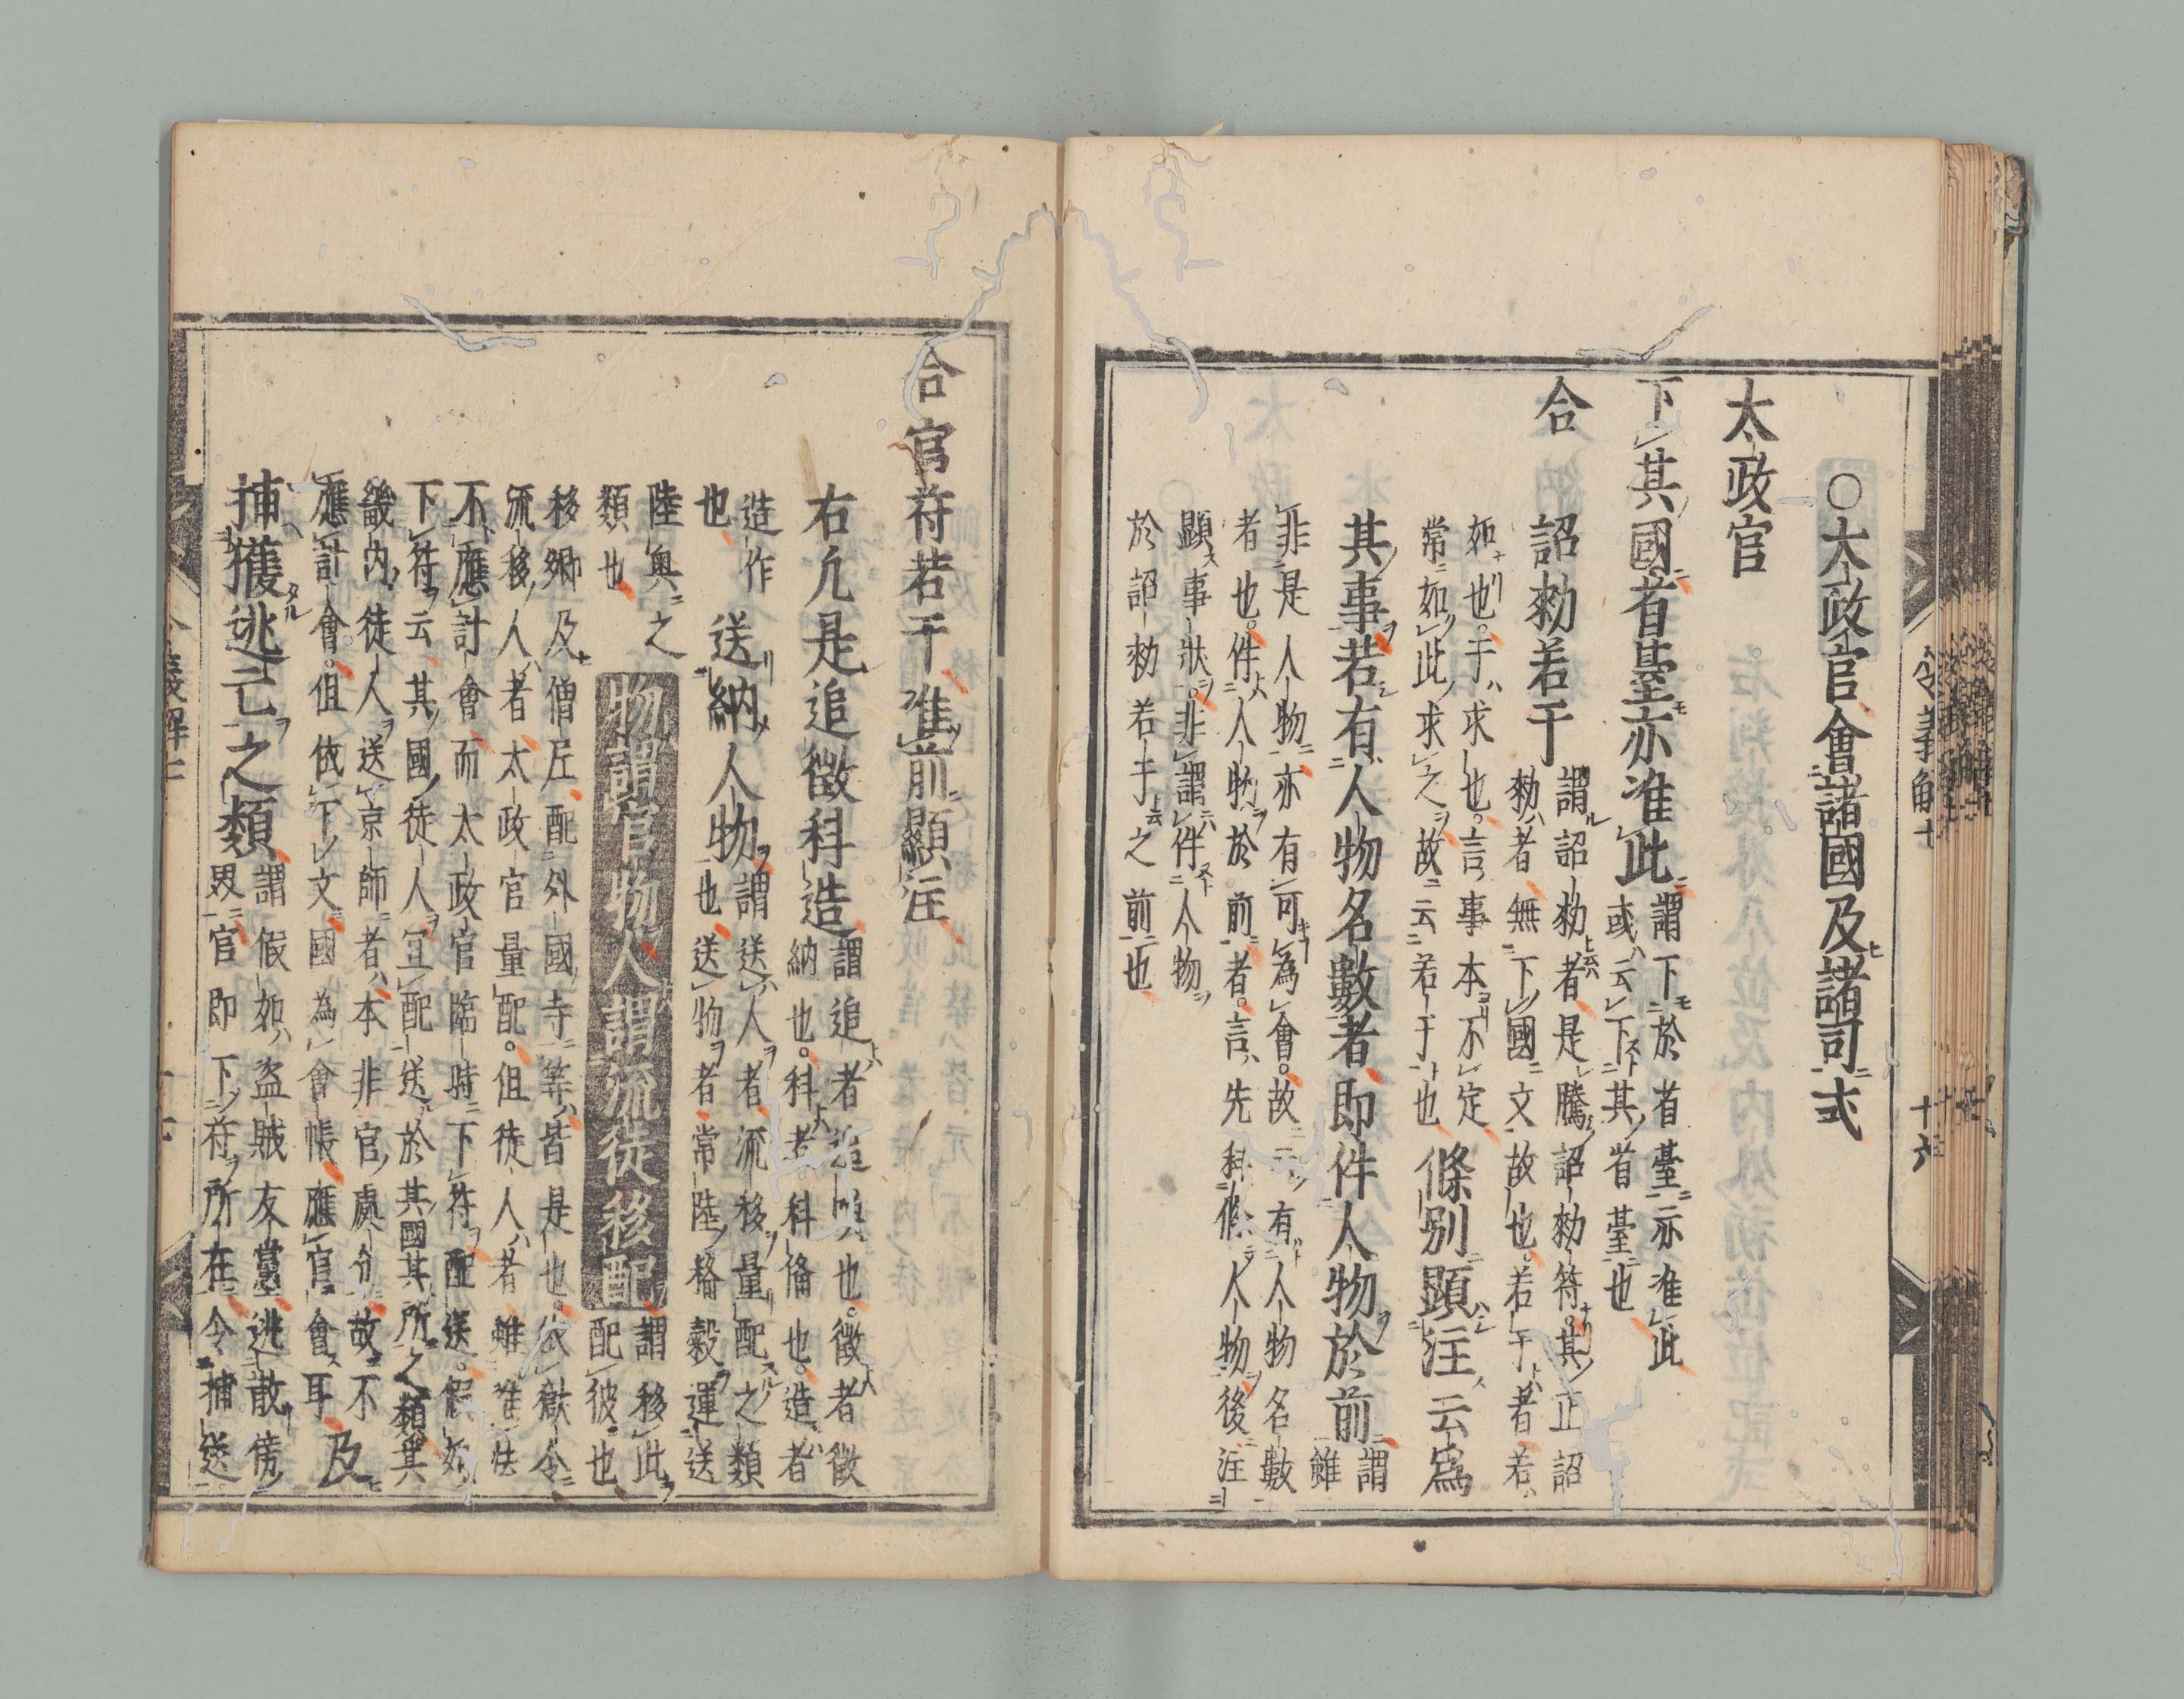 ○太政官會諸國及諸司式
太政官
下其國省臺亦准此
謂下於省臺亦准此
或云下其省臺也
合　詔勅若干
謂詔勅者是騰詔勅符其正詔
勅者無下國文故也若干者若
如也干求也言事本不定
常如此求之故云若干也
條別顯注云爲
其事若有人物名數者即件人物於前
謂雖
非是人物亦有可為會故云有人物名數
者也件人物於前者言先科條人物後注
顯事狀非謂件人物
於詔勅若干之前也
令義解七
十六
合官符若干准前顯注
右凡是追徵科造
謂追者追喚也徵者徵
納也科者科備也造者
造作
也
送納人物
謂送人者流移量配之類
也送物者常陸路穀運送
陸奥之
類也
物謂官物人謂流徒移配
謂移此
配彼也
移鄉及僧尼配外國寺等皆是也依獄令
流移人者太政官量配但徒人者雖准法
不應計會而太政官臨時下符配送假如
下符云其國徒人宜配送於其國其所之類其
畿内徒人送京師者本非官處分故不
應計會但依下文國為會帳應官會耳
及
捕獲逃亡之類
謂假如盜賊友黨逃散傍
界官即下符所在令捕送